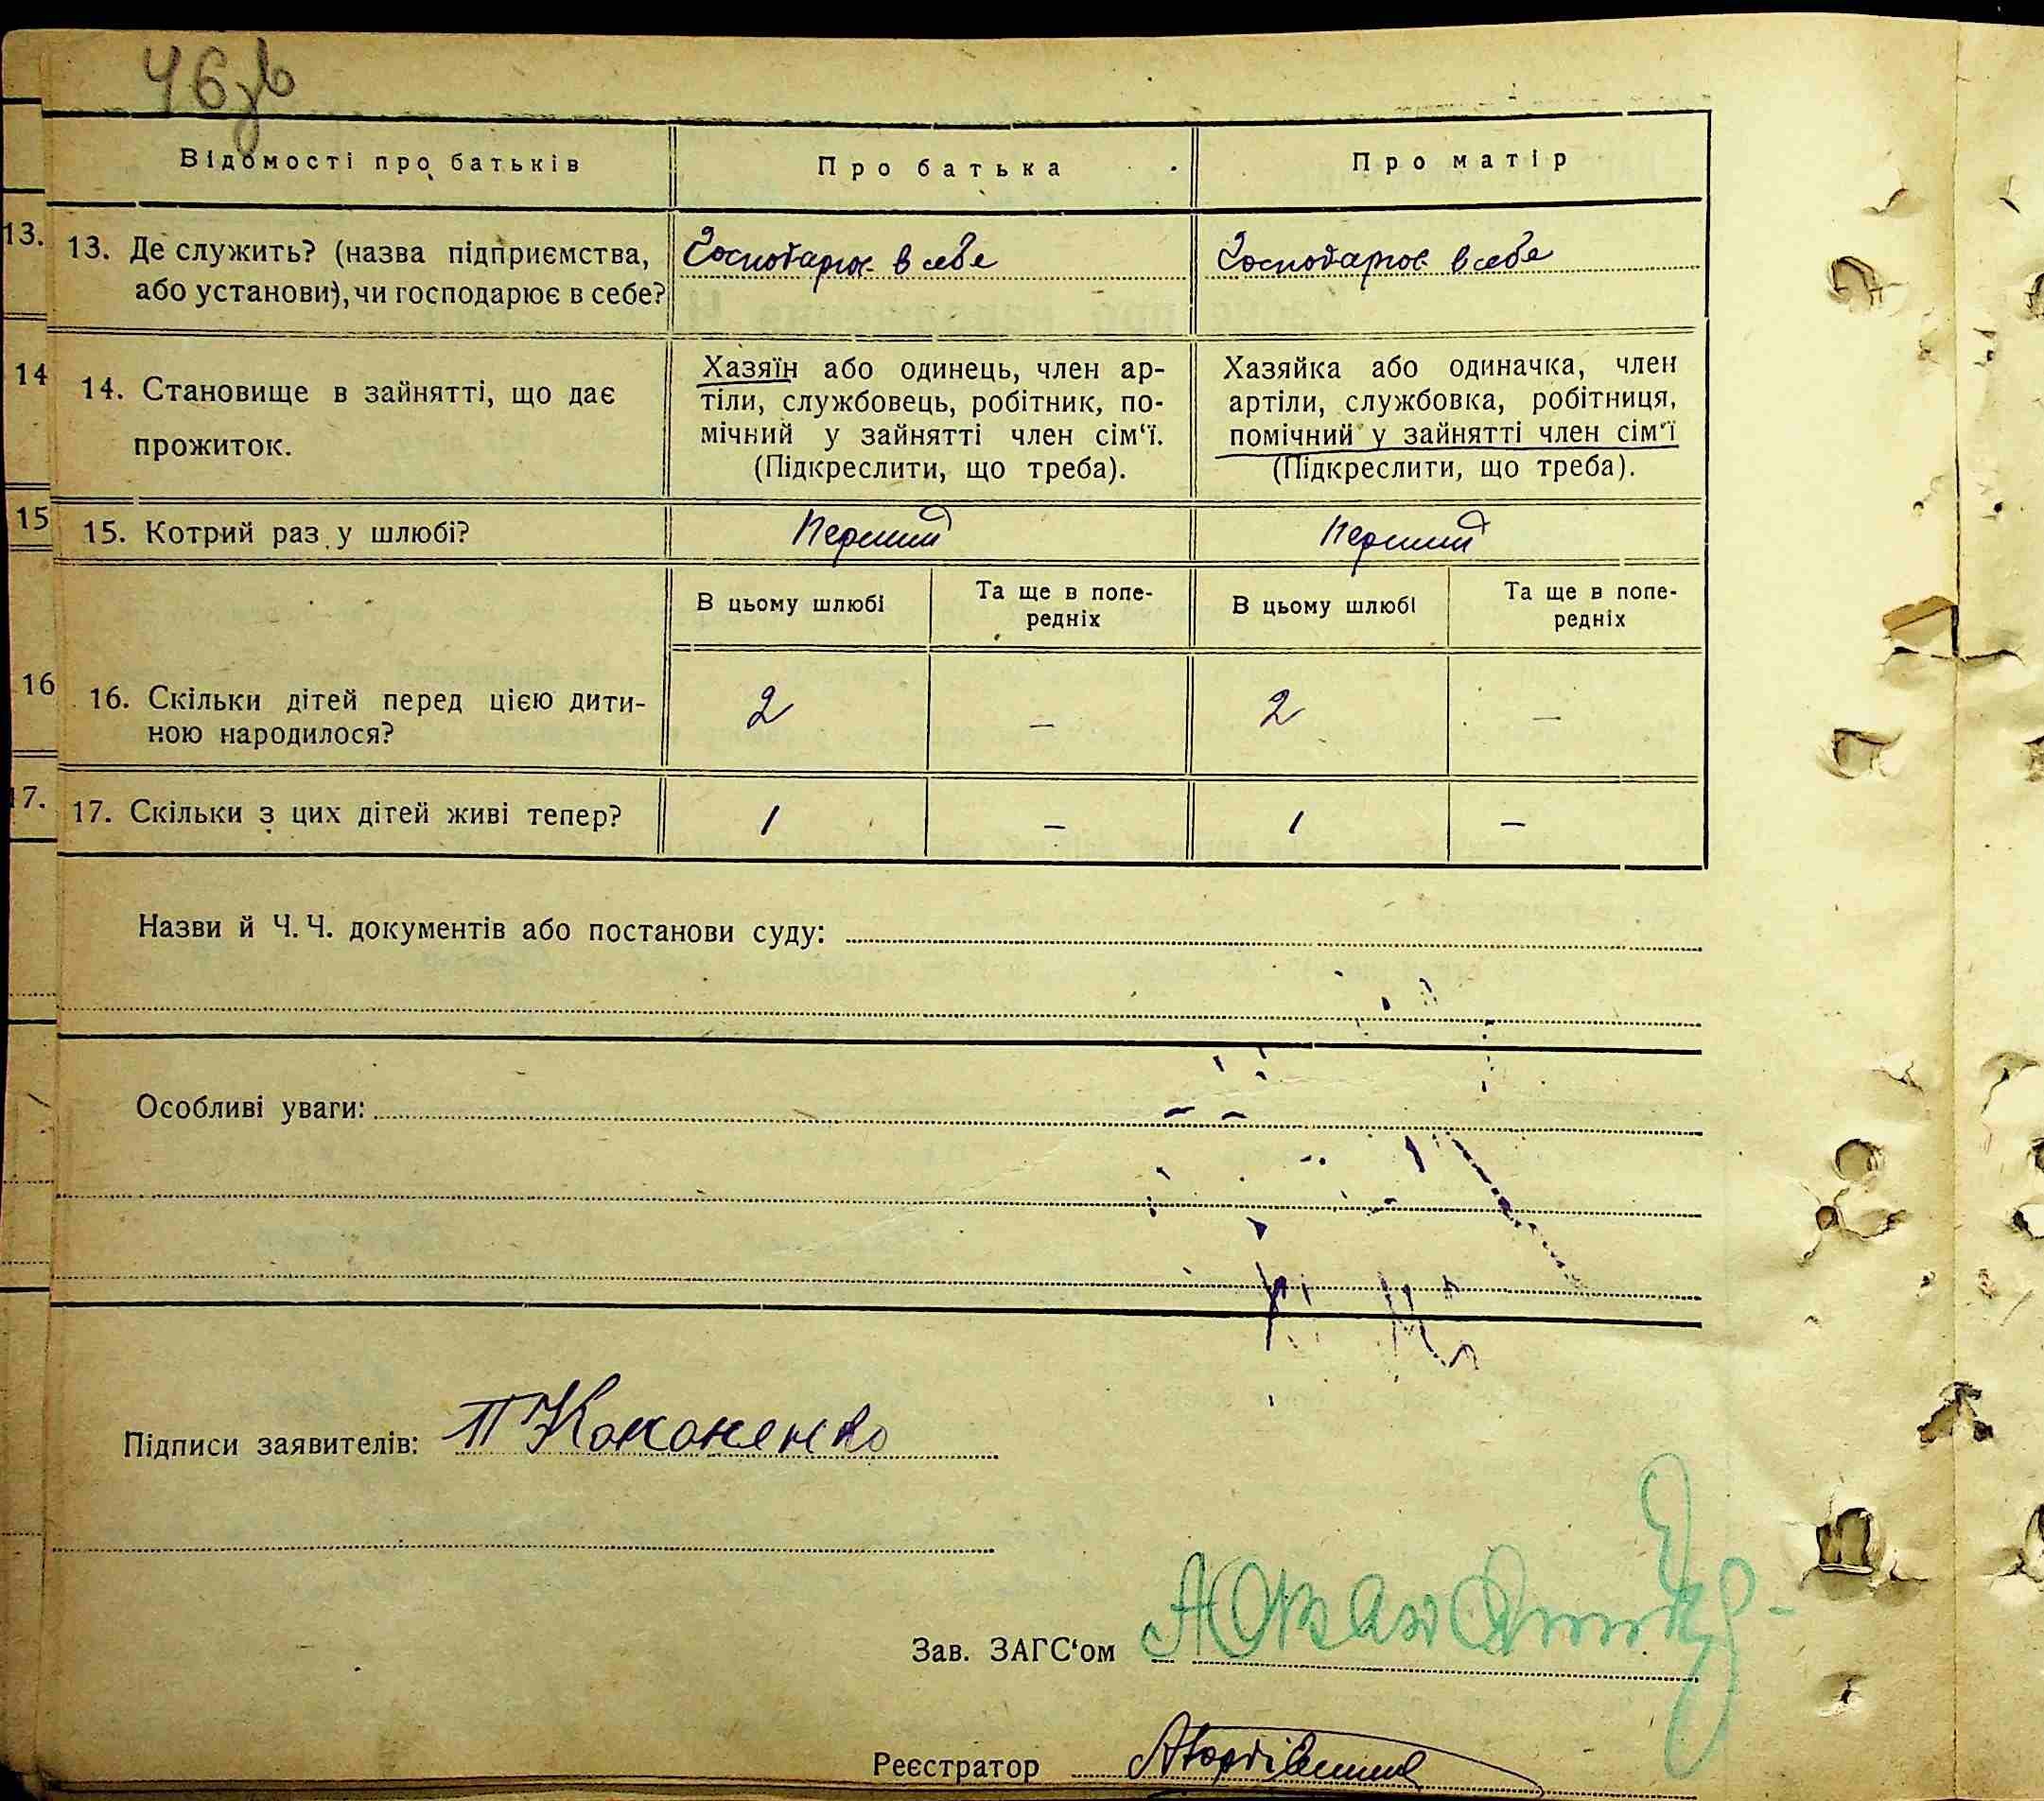 46зв
Відомості про батьків Про батька Про матір
13. 13. Де служить? (назва підприємства, Господарює в себе Господарює в себе
або установи), чи господарює в себе?
14 14. Становище в зайнятті, що дає прожиток. Хазяїн або одинець, член ар- Хазяйка або одиначка, член
тіли, службовець, робітник, по- артіли, службовка, робітниця,
мічний у зайнятті член сім‘ї. помічний у зайнятті член сім‘ї
(Підкреслити, що треба). (Підкреслити, що треба).
15 15. Котрий раз у шлюбі? Перший Перший
В цьому шлюбі Та ще в попе- В цьому шлюбі Та ще в попе-
редніх редніх
16 16. Скільки дітей перед цією дити- 2 — 2 —
ною народилося?
17. 17. Скільки з цих дітей живі тепер? 1 — 1 —
Назви й Ч. Ч. документів або постанови суду:
Особливі уваги:
Підписи заявителів: П Кононенко
Зав. ЗАГС‘ом
Реєстратор